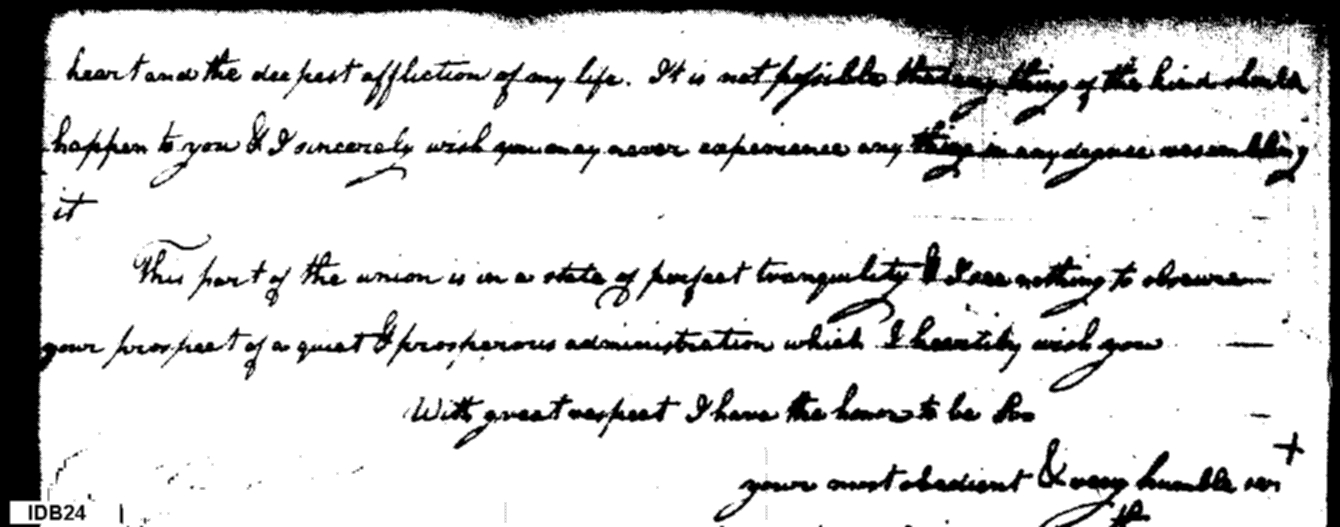 heart and the deepest affliction of my life. It is not possible that any thing of the kind should
happen to you & I sincerely wish you may never experience any thing in any degree resembling
it
This part of the union is in a state of perfect tranquility & I see nothing to obscure
your prospect of a quiet & prosperous administration which I heartily wish you
With great respect I have the honor to be Sir
your most obedient & very humble ser
IDB24